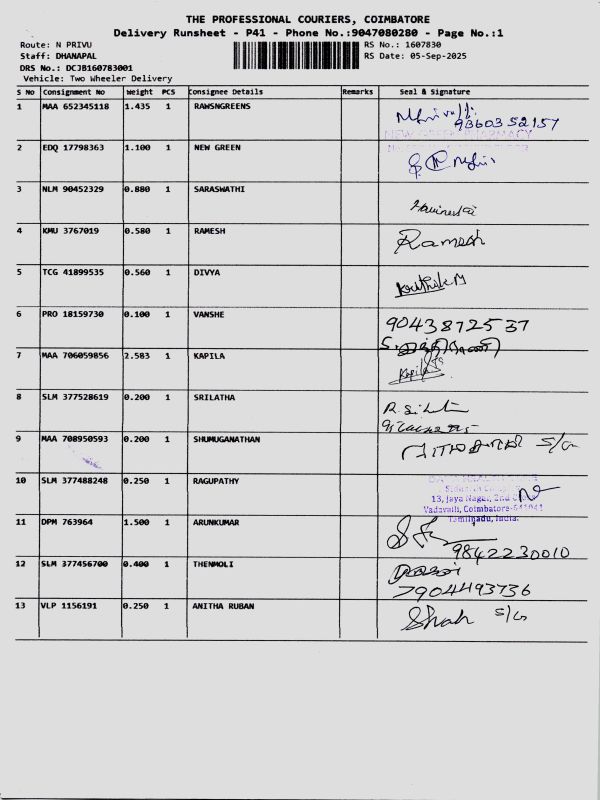 THE PROFESSIONAL COURIERS, COIMBATORE
Delivery Runsheet - P41 - Phone No.:9047080280 - Page No.:1
Route: N PRIVU RS No.: 1607830
Staff: DHANAPAL RS Date: 05-Sep-2025
DRS No.: DCJB160783001
Vehicle: Two Wheeler Delivery
S No Consignment No Weight PCS Consignee Details Remarks Seal & Signature
1 MAA 652345118 1.435 1 RAWSNGREENS
9360352157
NEW GREEN PHARMACY
2 EDQ 17798363 1.100 1 NEW GREEN
3 NLM 90452329 0.880 1 SARASWATHI
4 KMU 3767019 0.580 1 RAMESH Ramesh
5 TCG 41899535 0.560 1 DIVYA Karthik M
6 PRO 18159730 0.100 1 VANSHE 9043872537
7 MAA 706059856 2.583 1 KAPILA Kapila
8 SLM 377528619 0.200 1 SRILATHA
9 MAA 708950593 0.200 1 SHUMUGANATHAN S/o
10 SLM 377488248 0.250 1 RAGUPATHY
13, Jaya Nagar, 2nd
Vadavalli, Coimbatore-641041
Tamilnadu, India.
11 DPM 763964 1.500 1 ARUNKUMAR
9842230010
12 SLM 377456700 0.400 1 THENMOLI
7904493736
13 VLP 1156191 0.250 1 ANITHA RUBAN Shah S/o